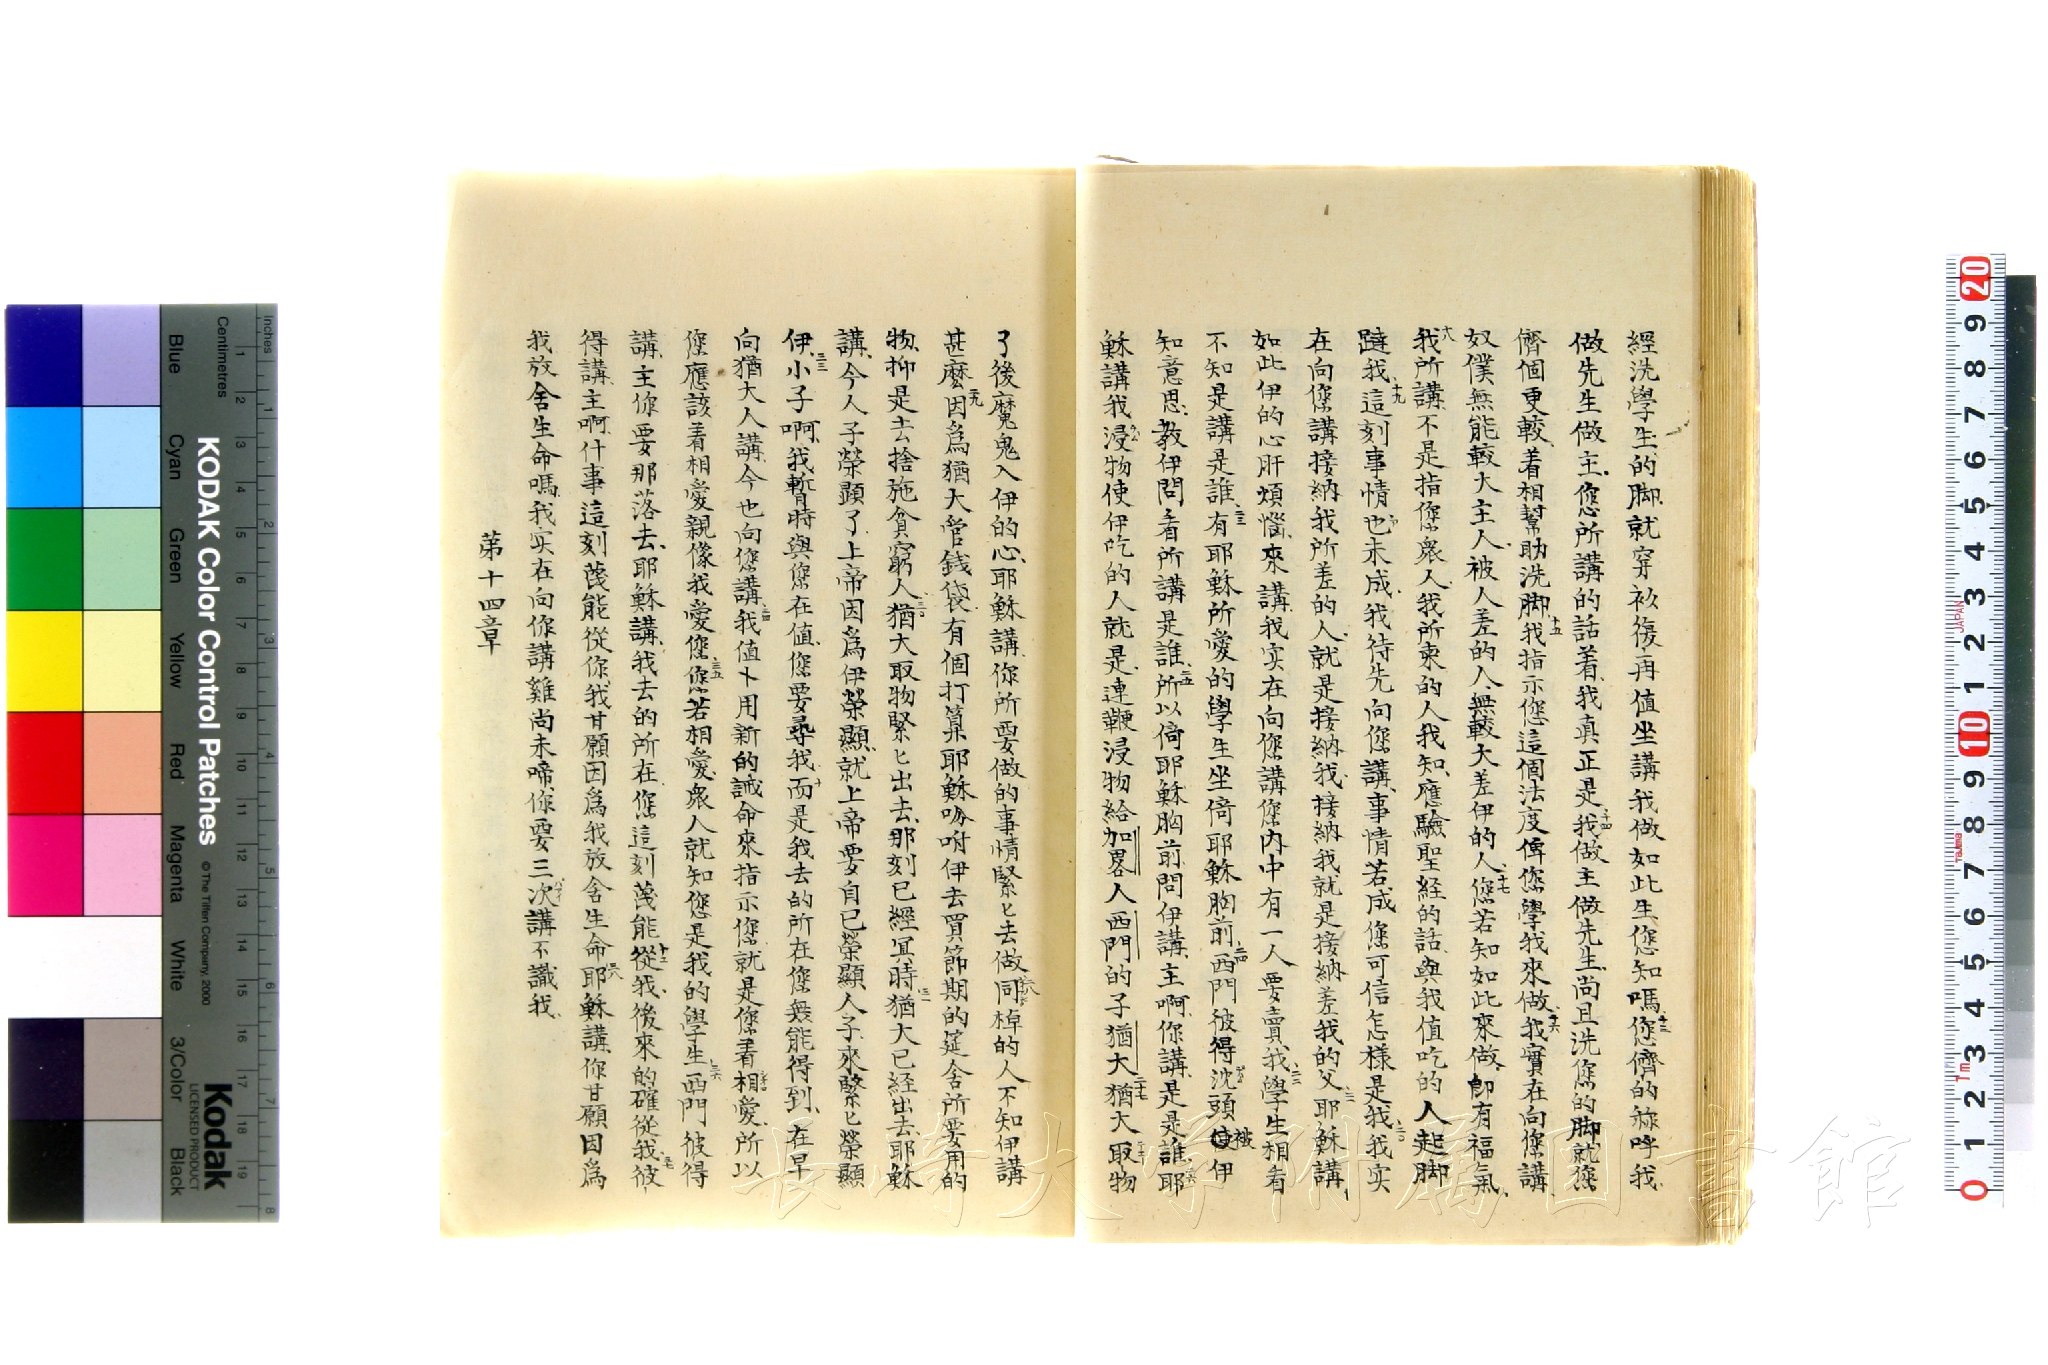 經洗學生的脚、就穿衫復再值坐講我做如此生、您知嗎、十三您儕的稱呼我
做先生做主、您所講的話着、我真正是、十四我做主做先生、尚且洗您的脚、就您
儕個更較、着相幫助洗脚、十五我指示您這個法度、俾您學我來做、十六我實在向您講、
奴僕無能較大主人、被人差的人、無較大差伊的人、十七您若知如此來做、即有福氣、
十八我所講、不是指您衆人、我所柬的人我知、應驗聖経的話、與我值吃的人、起脚
躂我、十九這刻事情也未成、我待先向您講、事情若成、您可信怎樣是我、二十我实
在向您講、接納我所差的人、就是接納我、接納我就是接納差我的父、二一耶穌講、
如此伊的心肝煩惱、來講、我实在向您講、您内中有一人要賣我、二二學生相看
不知是講是誰、二三有耶穌所愛的學生坐倚耶穌胸前、二四西門彼得沈頭被伊
知意思、教伊問看所講是誰、二五所以倚耶穌胸前問伊講、主啊、你講是是誰、二六耶
穌講我浸物使伊吃的人就是、連鞭浸物給加畧人西門的子猶大、二七猶大取物
了後魔鬼入伊的心、耶穌講、你所要做的事情緊匕去做、二八同棹的人不知伊講
甚麼、二九因爲猶大管錢袋、有個打算耶穌吩咐伊去買節期的筵舍所要用的
物、抑是去捨施貧窮人、三十猶大取物緊匕出去、那刻已經冥時、三一猶大已経出去、耶穌
講、今人子榮顕了、上帝因爲伊榮顯、就上帝要自己榮顯人子、來緊匕榮顯
伊、三三小子啊、我暫時與您在值、您要尋我、而是我去的所在、您無能得到、在早
向猶大人講、今也向您講、三四我值卜用新的誡命來指示您、就是您着相愛、所以
您應該着相愛親像我愛您、三五您若相愛、衆人就知您是我的學生、三六西門彼得
講、主你要那落去、耶穌講、我去的所在、您這刻莈能從我、後來的確從我、三七彼
得講、主啊、什事這刻莈能從你、我甘願因爲我放舍生命、三八耶穌講、你甘願因爲
我放舍生命嗎、我实在向你講、雞尚未啼、你要三次講不識我、
第十四章
長崎大学附属図書館
KODAK Color Control Patches
© The Tiffen Company, 2000
Kodak
LICENSED PRODUCT
Blue Cyan Green Yellow Red Magenta White 3/Color Black
Inches
Centimetres
1 2 3 4 5 6 7 8 9 10 11 12 13 14 15 16 17 18 19
1 2 3 4 5 6 7 8
20 9 8 7 6 5 4 3 2 1 10 9 8 7 6 5 4 3 2 1 0
JAPAN
1m